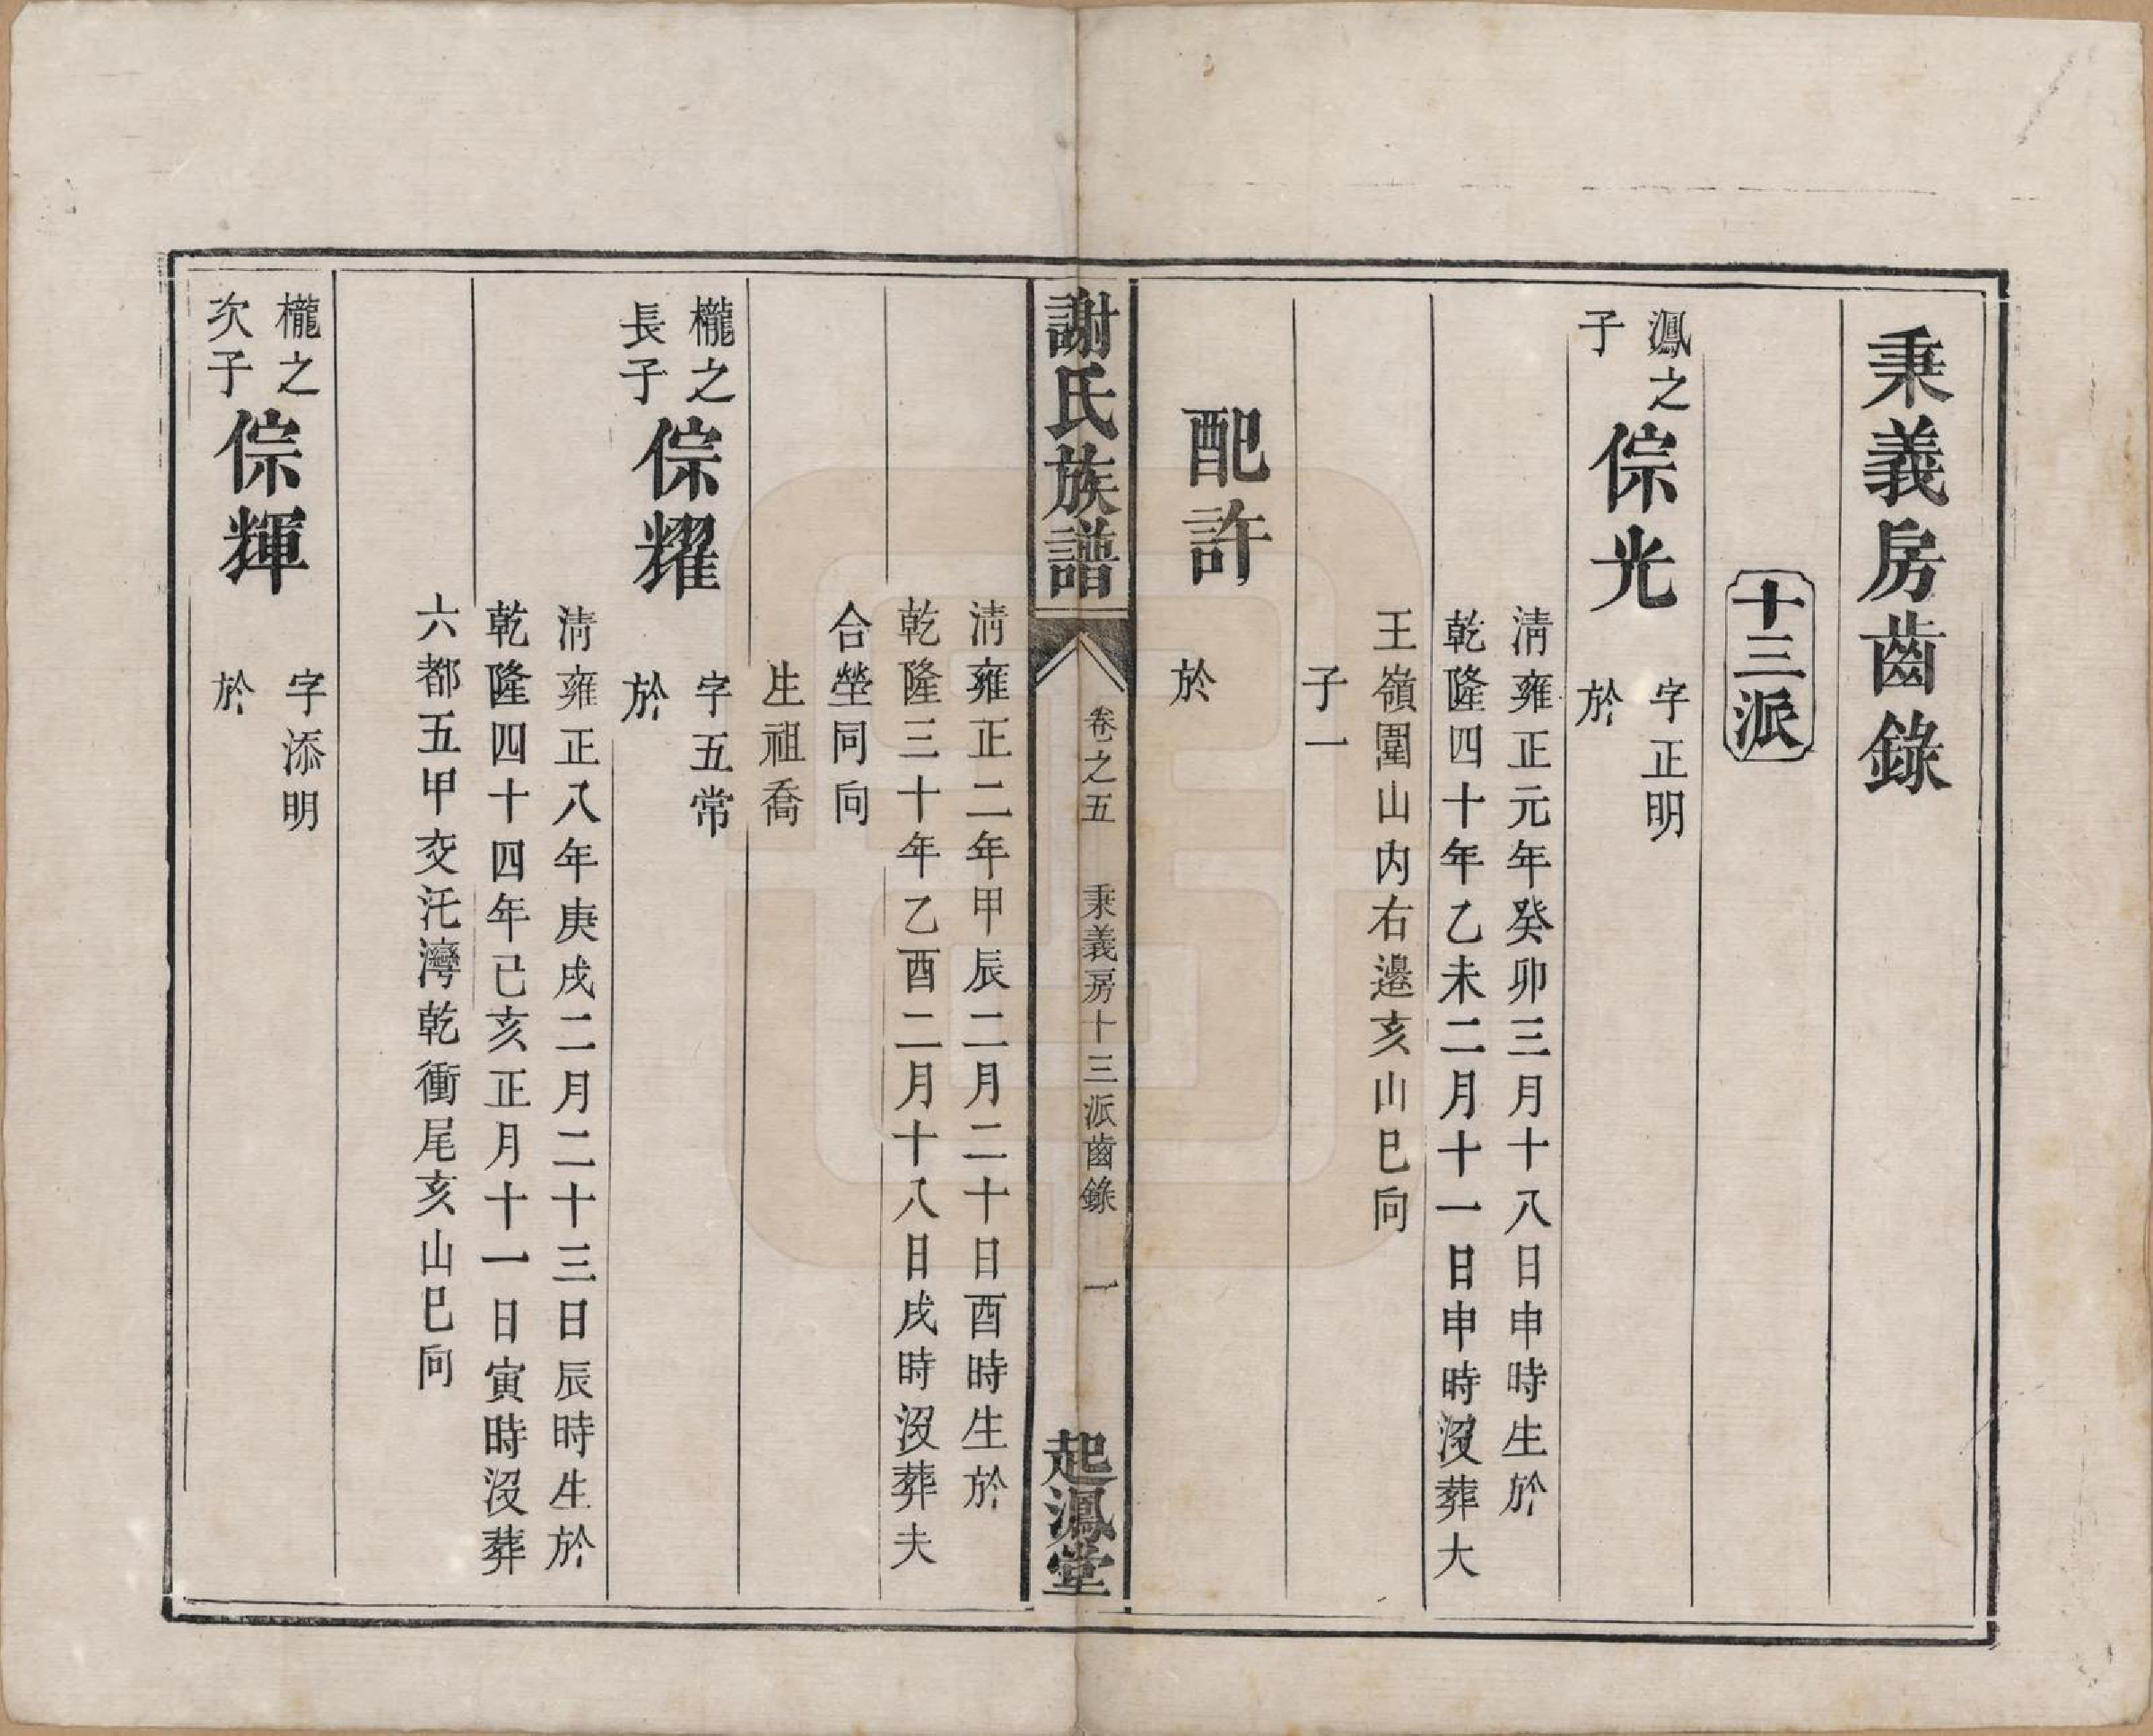 秉義房齒錄
十三派
鳳之子
倧光
字正明
於
清雍正元年癸卯三月十八日申時生於
乾隆四十年乙未二月十一日申時沒葬大
王嶺圍山內右邊亥山巳向
子一
配許
於
謝氏族譜
卷之五
秉義房十三派齒錄
一
起鳳堂
清雍正二年甲辰二月二十日酉時生於
乾隆三十年乙酉二月十八日戌時沒葬夫
合塋同向
生祖喬
櫳之長子
倧耀
字五常
於
清雍正八年庚戌二月二十三日辰時生於
乾隆四十四年己亥正月十一日寅時沒葬
六都五甲交汑灣乾衝尾亥山巳向
櫳之次子
倧輝
字添明
於